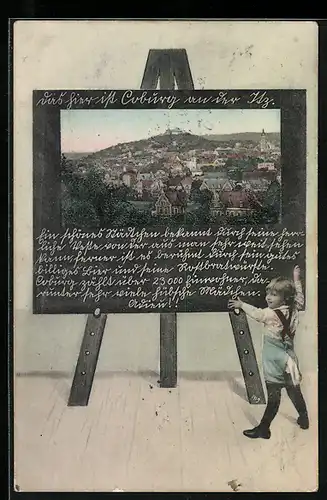 Das hier ist Coburg an der Itz.
Ein schönes Städtchen bekannt durch seine herr-
liche Veste von der aus man sehr weit sehen
kann, ferner ist es berühmt durch sein gutes
billiges Bier und seine Rostbratwürste.
Coburg zählt über 23000 Einwohner, da-
runter sehr viele hübsche Mädchen.
Adieu!